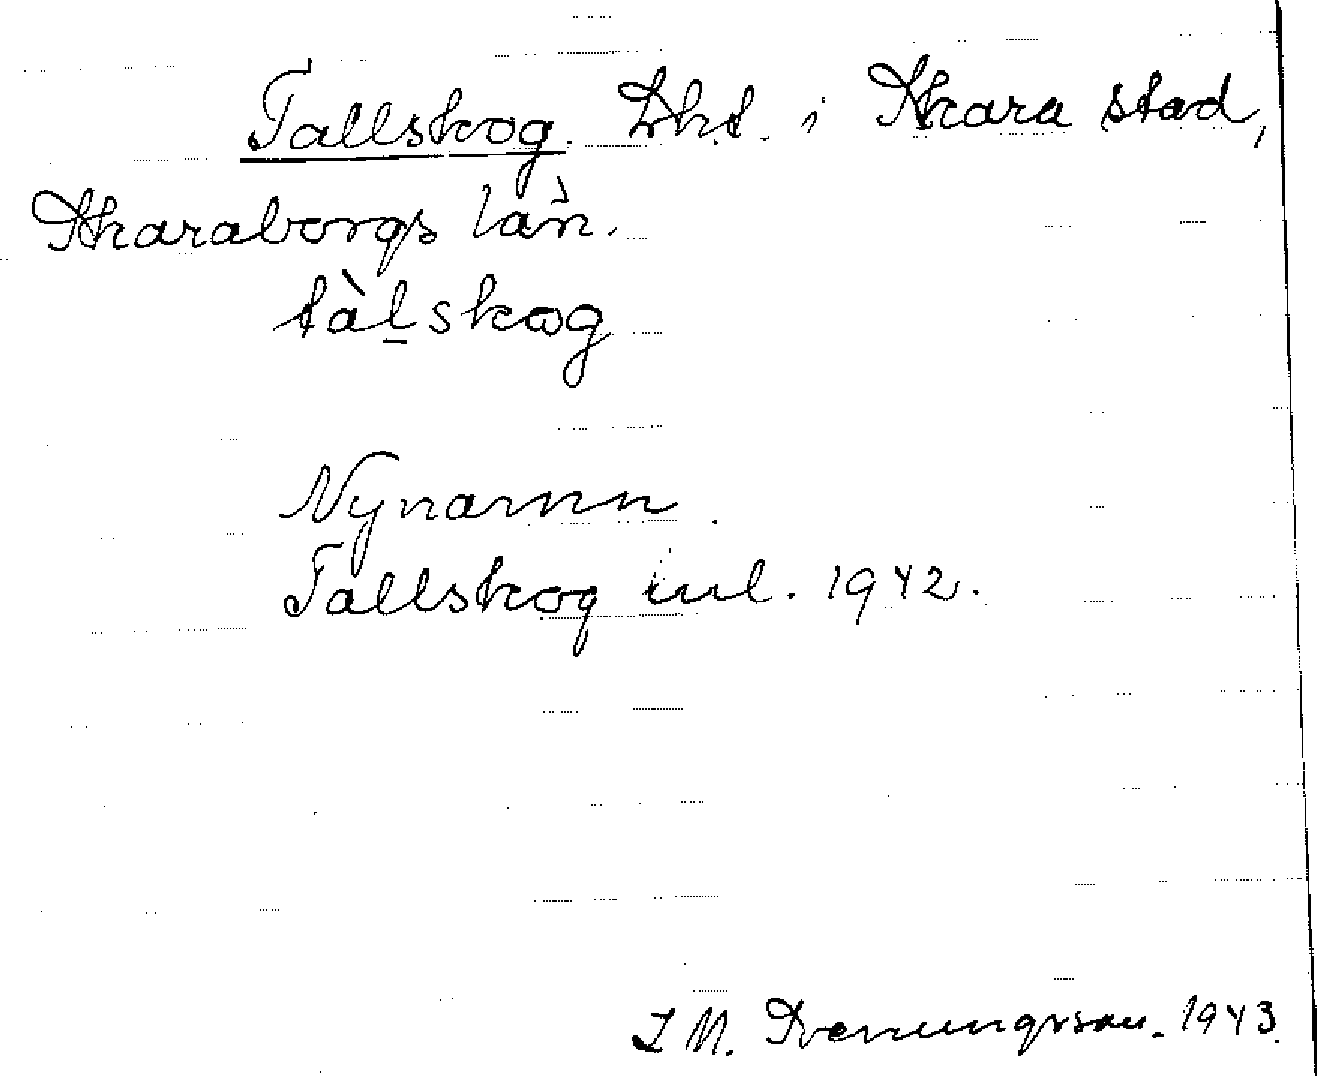 Tallskog. Lht. i Skara stad,
Skaraborgs län.
tàlskog
Nynamn.
Tallskog inl. 1942.
I M. Svenungsson. 1943.